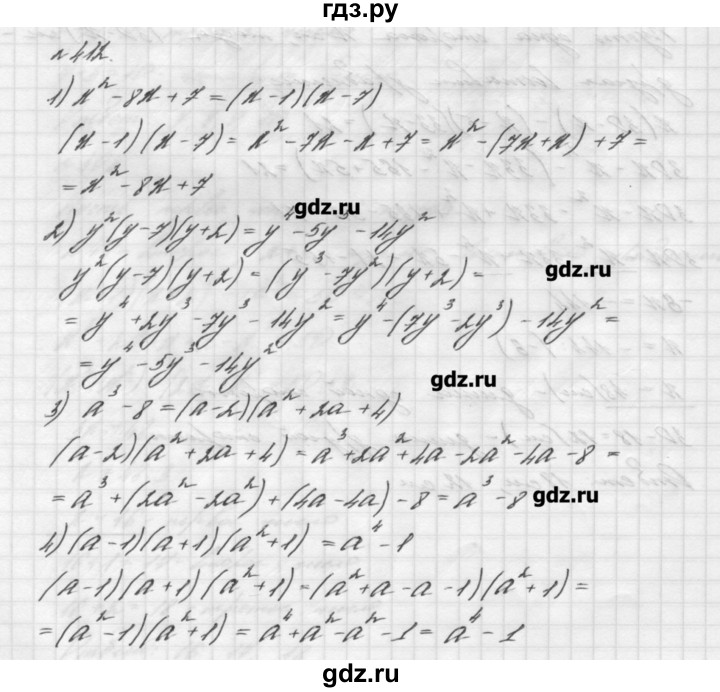 гдз.ру
№ 412.
1) x² - 8x + 7 = (x - 1)(x - 7)
(x - 1)(x - 7) = x² - 7x - x + 7 = x² - (7x + x) + 7 =
= x² - 8x + 7
gdz.ru
2) y²(y - 7)(y + 2) = y⁴ - 5y³ - 14y²
y²(y - 7)(y + 2) = (y³ - 7y²)(y + 2) =
gdz.ru
= y⁴ + 2y³ - 7y³ - 14y² = y⁴ - (7y³ - 2y³) - 14y² =
= y⁴ - 5y³ - 14y²
gdz.ru
3) a³ - 8 = (a - 2)(a² + 2a + 4)
(a - 2)(a² + 2a + 4) = a³ + 2a² + 4a - 2a² - 4a - 8 =
= a³ + (2a² - 2a²) + (4a - 4a) - 8 = a³ - 8
gdz.ru
4) (a - 1)(a + 1)(a² + 1) = a⁴ - 1
(a - 1)(a + 1)(a² + 1) = (a² + a - a - 1)(a² + 1) =
= (a² - 1)(a² + 1) = a⁴ + a² - a² - 1 = a⁴ - 1
gdz.ru